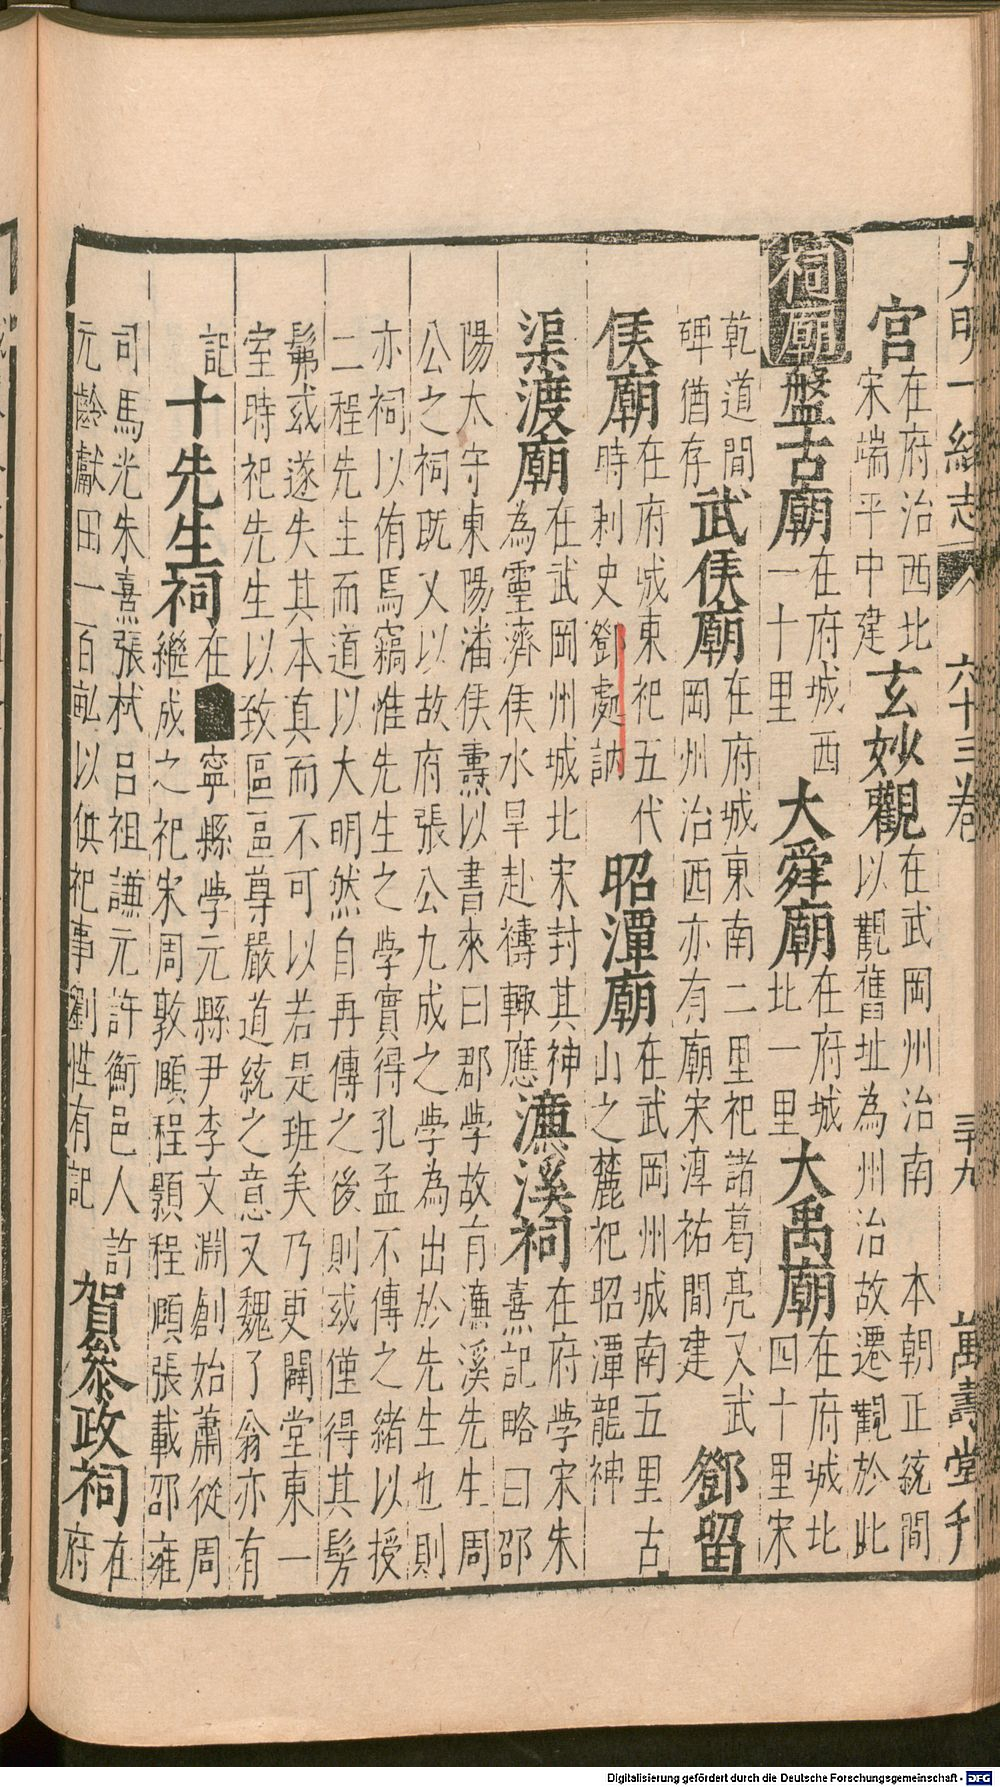 大明一統志 六十三卷 三十九 萬壽堂刊
宮在府治西北宋端平中建玄妙觀在武岡州治南 本朝正統間以觀舊址為州治故遷觀於此
祠廟盤古廟在府城西一十里大舜廟在府城北一里大禹廟在府城北四十里宋
乾道間碑猶存武侯廟在府城東南二里祀諸葛亮又武岡州治西亦有廟宋淳祐間建鄧留
侯廟在府城東祀五代時刺史鄧處訥昭潭廟在武岡州城南五里古山之麓祀昭潭龍神
渠渡廟在武岡州城北宋封其神為靈濟侯水旱赴禱輒應濂溪祠在府學宋朱熹記略曰邵
陽太守東陽潘侯燾以書來曰郡學故有濂溪先生周
公之祠既又以故府張公九成之學為出於先生也則
亦祠以侑焉竊惟先生之學實得孔孟不傳之緒以授
二程先生而道以大明然自再傳之後則或僅得其髣
髴或遂失其本真而不可以若是班矣乃更闢堂東一
室時祀先生以致區區尊嚴道統之意又魏了翁亦有
記十先生祠在寧縣學元縣尹李文淵創始蕭從周繼成之祀宋周敦頤程顥程頤張載邵雍
司馬光朱熹張栻呂祖謙元許衡邑人許元齡獻田一百畝以供祀事劉性有記賀叅政祠在府